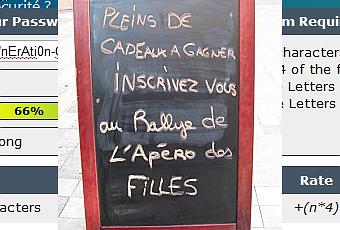 écurité ?
r Passw
m Requi
nErAti0n-
characters
4 of the f
Letters
e Letters
66%
ong
Rate
acters
+(n*4)
PLEINS DE
CADEAUX A GAGNER
INSCRIVEZ VOUS
au Rallye de
L'APéRO des
FILLES